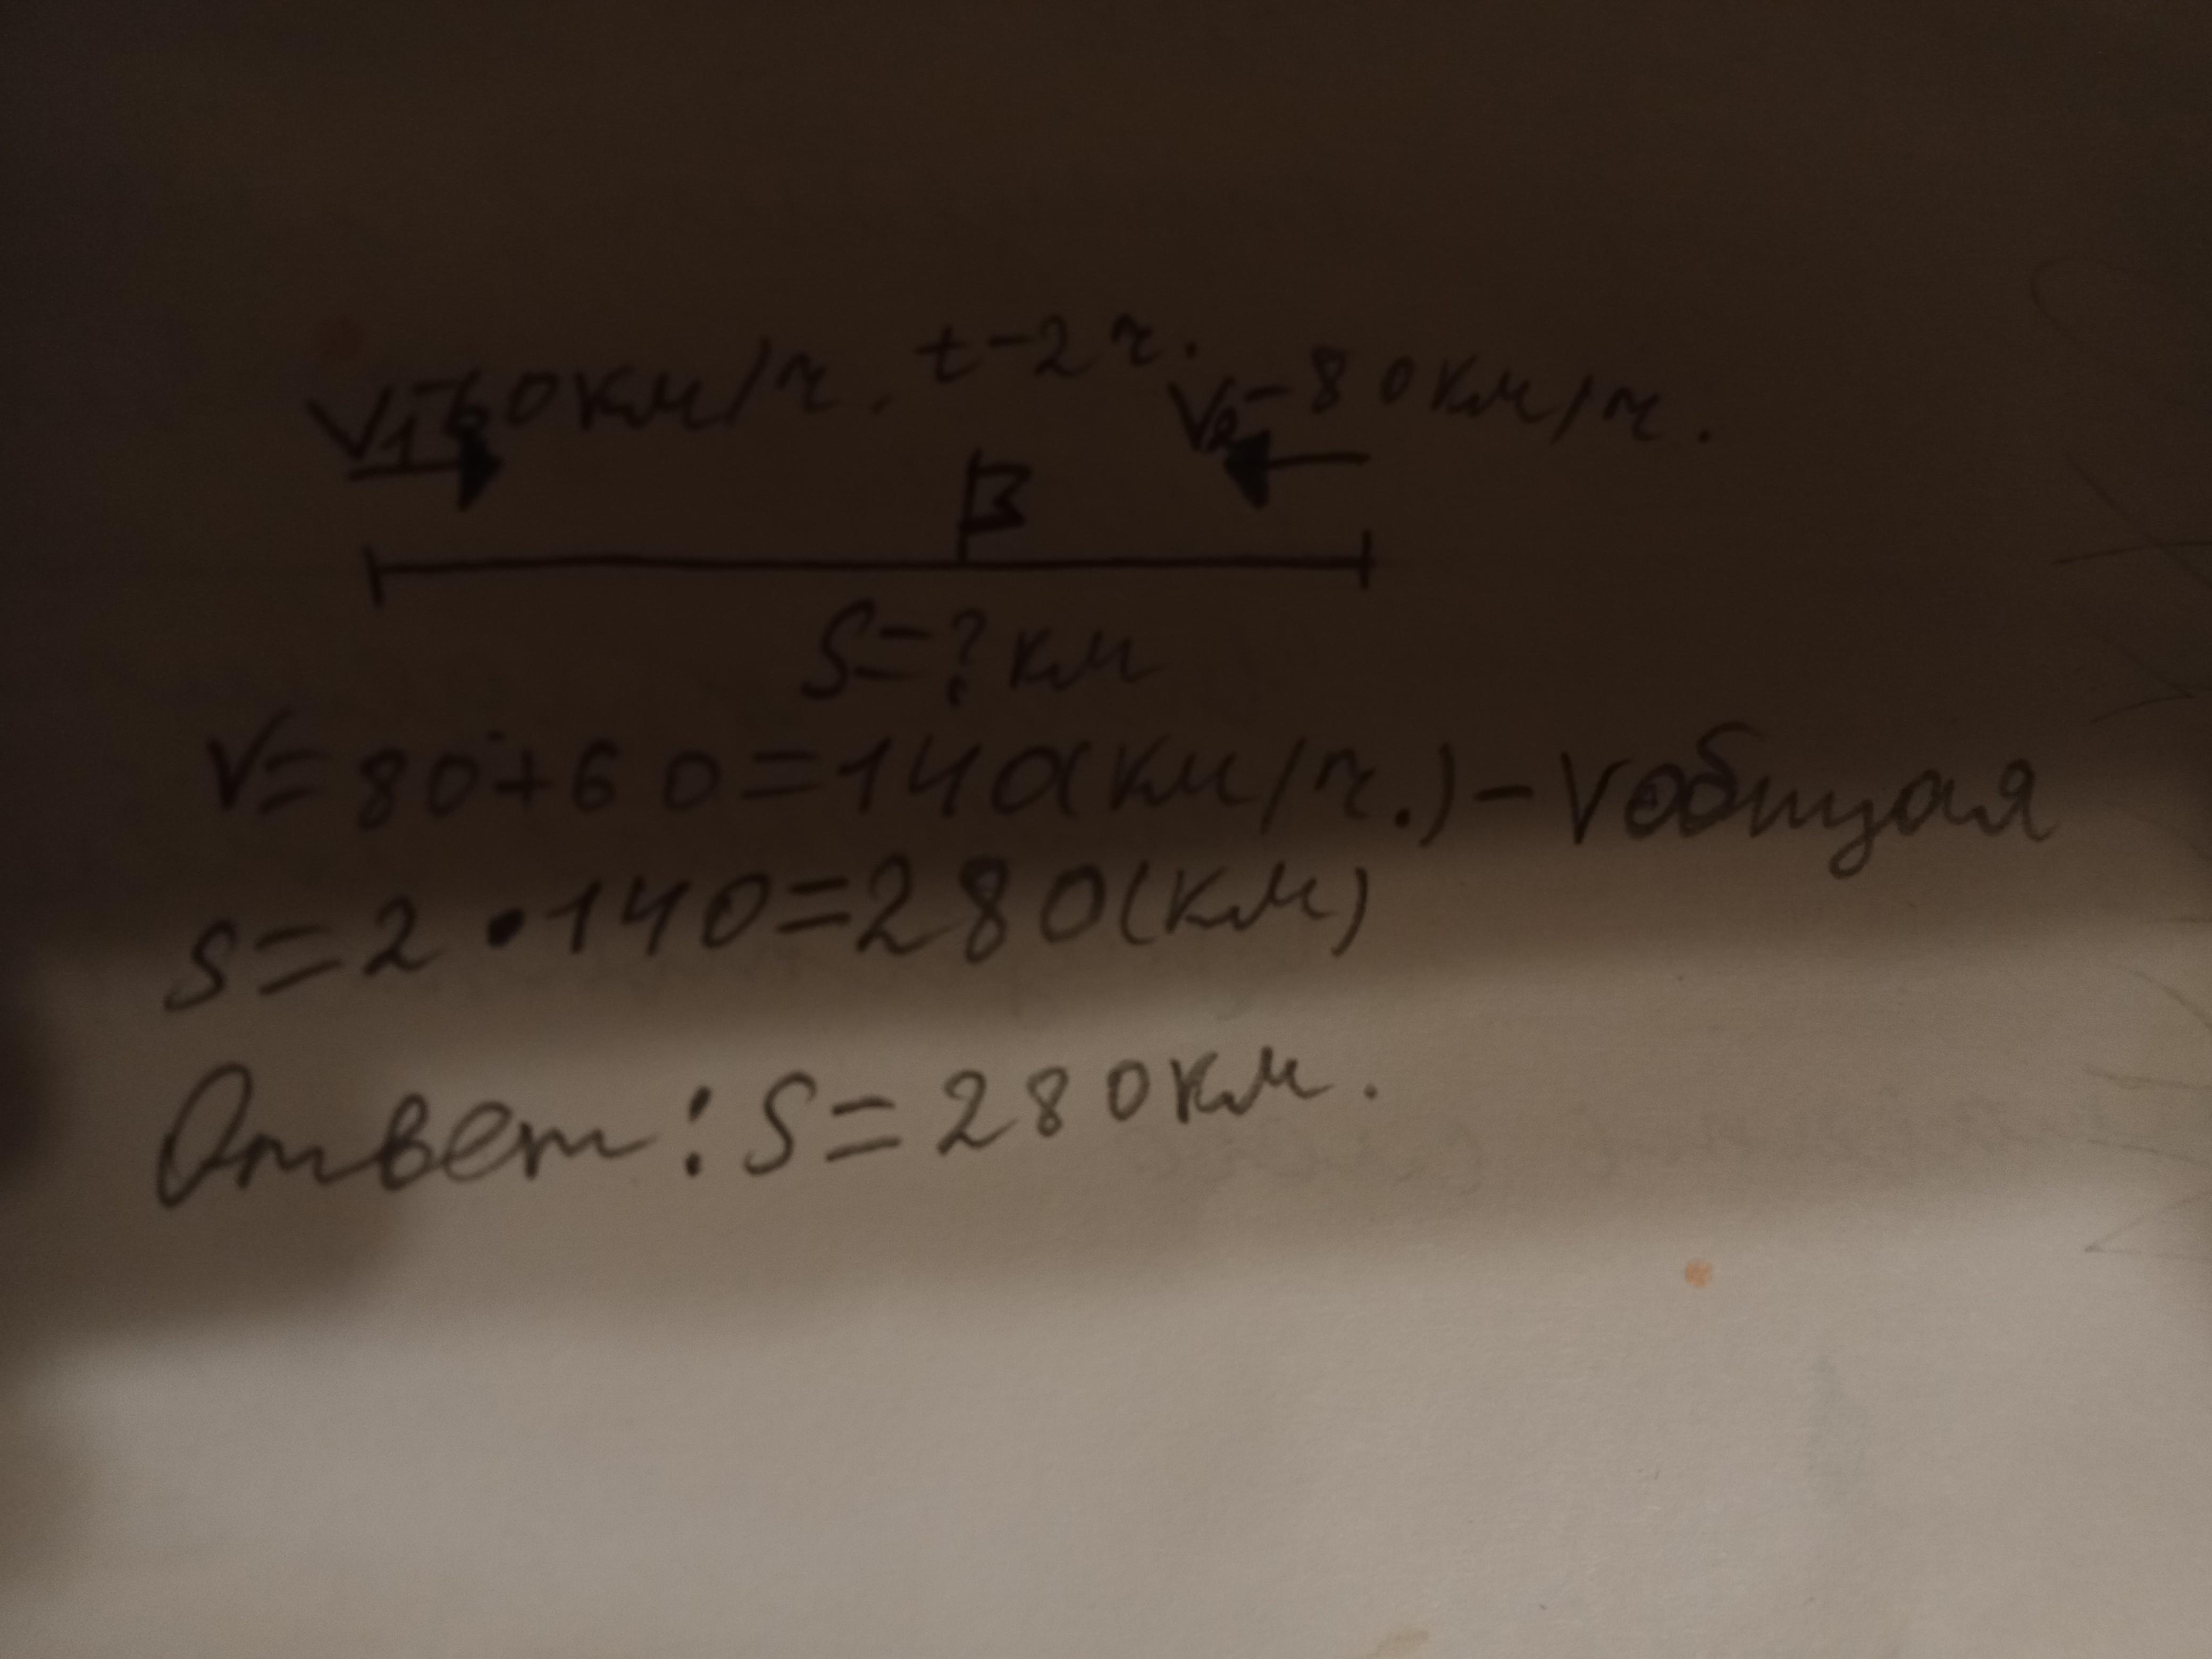 V1-60км/ч. t-2ч. V2-80км/ч.
S=?км
V=80+60=140(км/ч.)-Vобщая
S=2•140=280(км)
Ответ: S=280км.